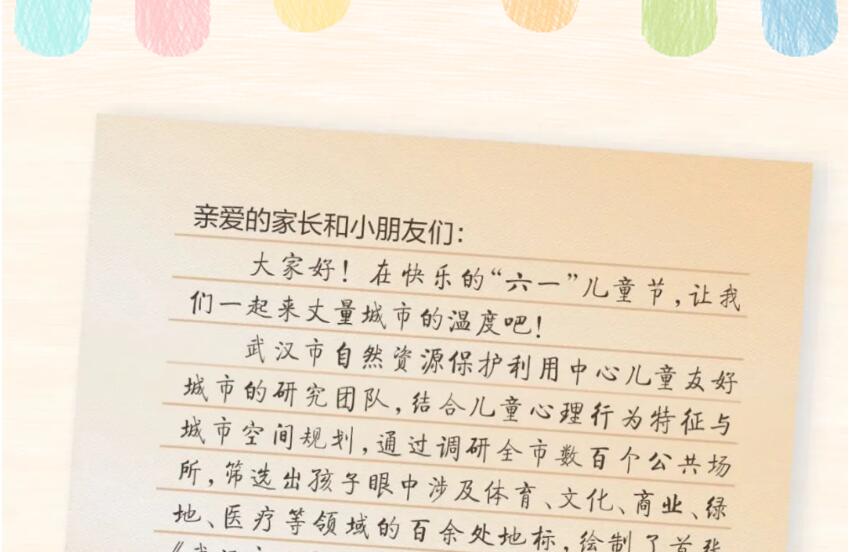 亲爱的家长和小朋友们：
大家好！在快乐的“六一”儿童节，让我
们一起来丈量城市的温度吧！
武汉市自然资源保护利用中心儿童友好
城市的研究团队，结合儿童心理行为特征与
城市空间规划，通过调研全市数百个公共场
所，筛选出孩子眼中涉及体育、文化、商业、绿
地、医疗等领域的百余处地标，绘制了首张